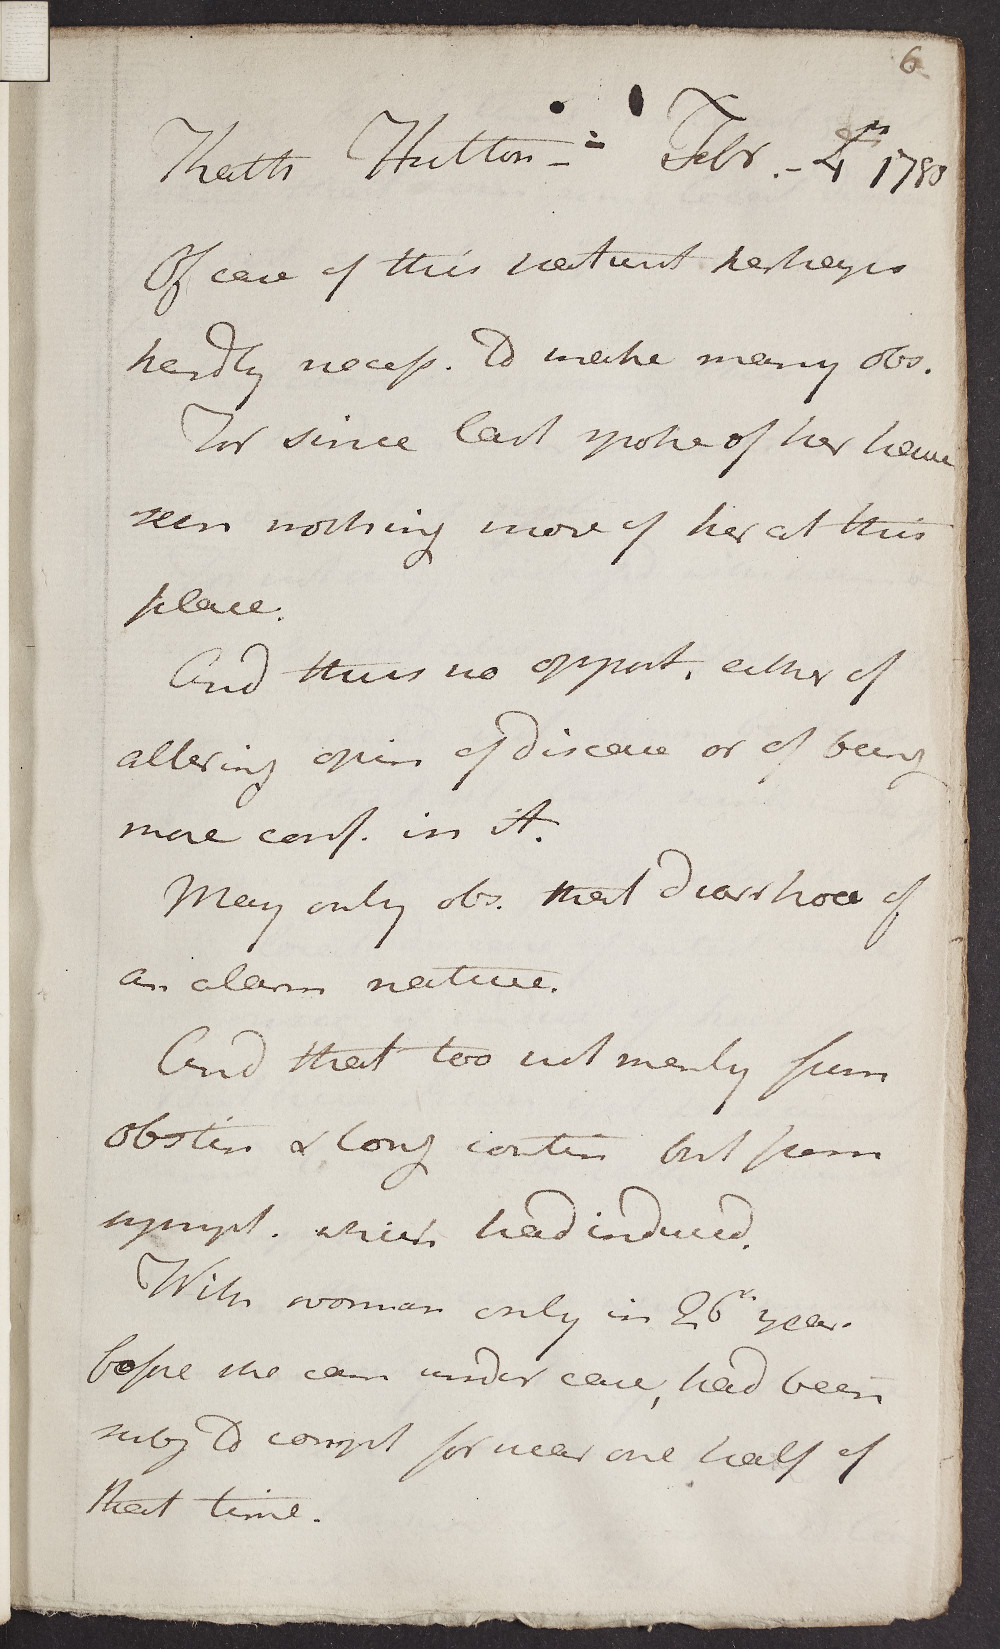 6
Kath Hutton - Febr. - 4th 1780
Of case of this nature perhaps
hardly necess. to make many obs.
For since last spoke of her have
seen nothing more of her at this
place.
And thus no opport. either of
altering opin of disease or of being
more conf. in it.
May only obs. that diarrhoea of
an alarm nature.
And that too not merely from
obstin & long contin but from
sympt. which had induced.
With woman only in 26th year.
before she cam under care, had been
subj to compt for near one half of
that time.